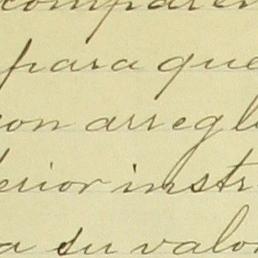 comparen
para que
con arregl
erior instr
a su valor